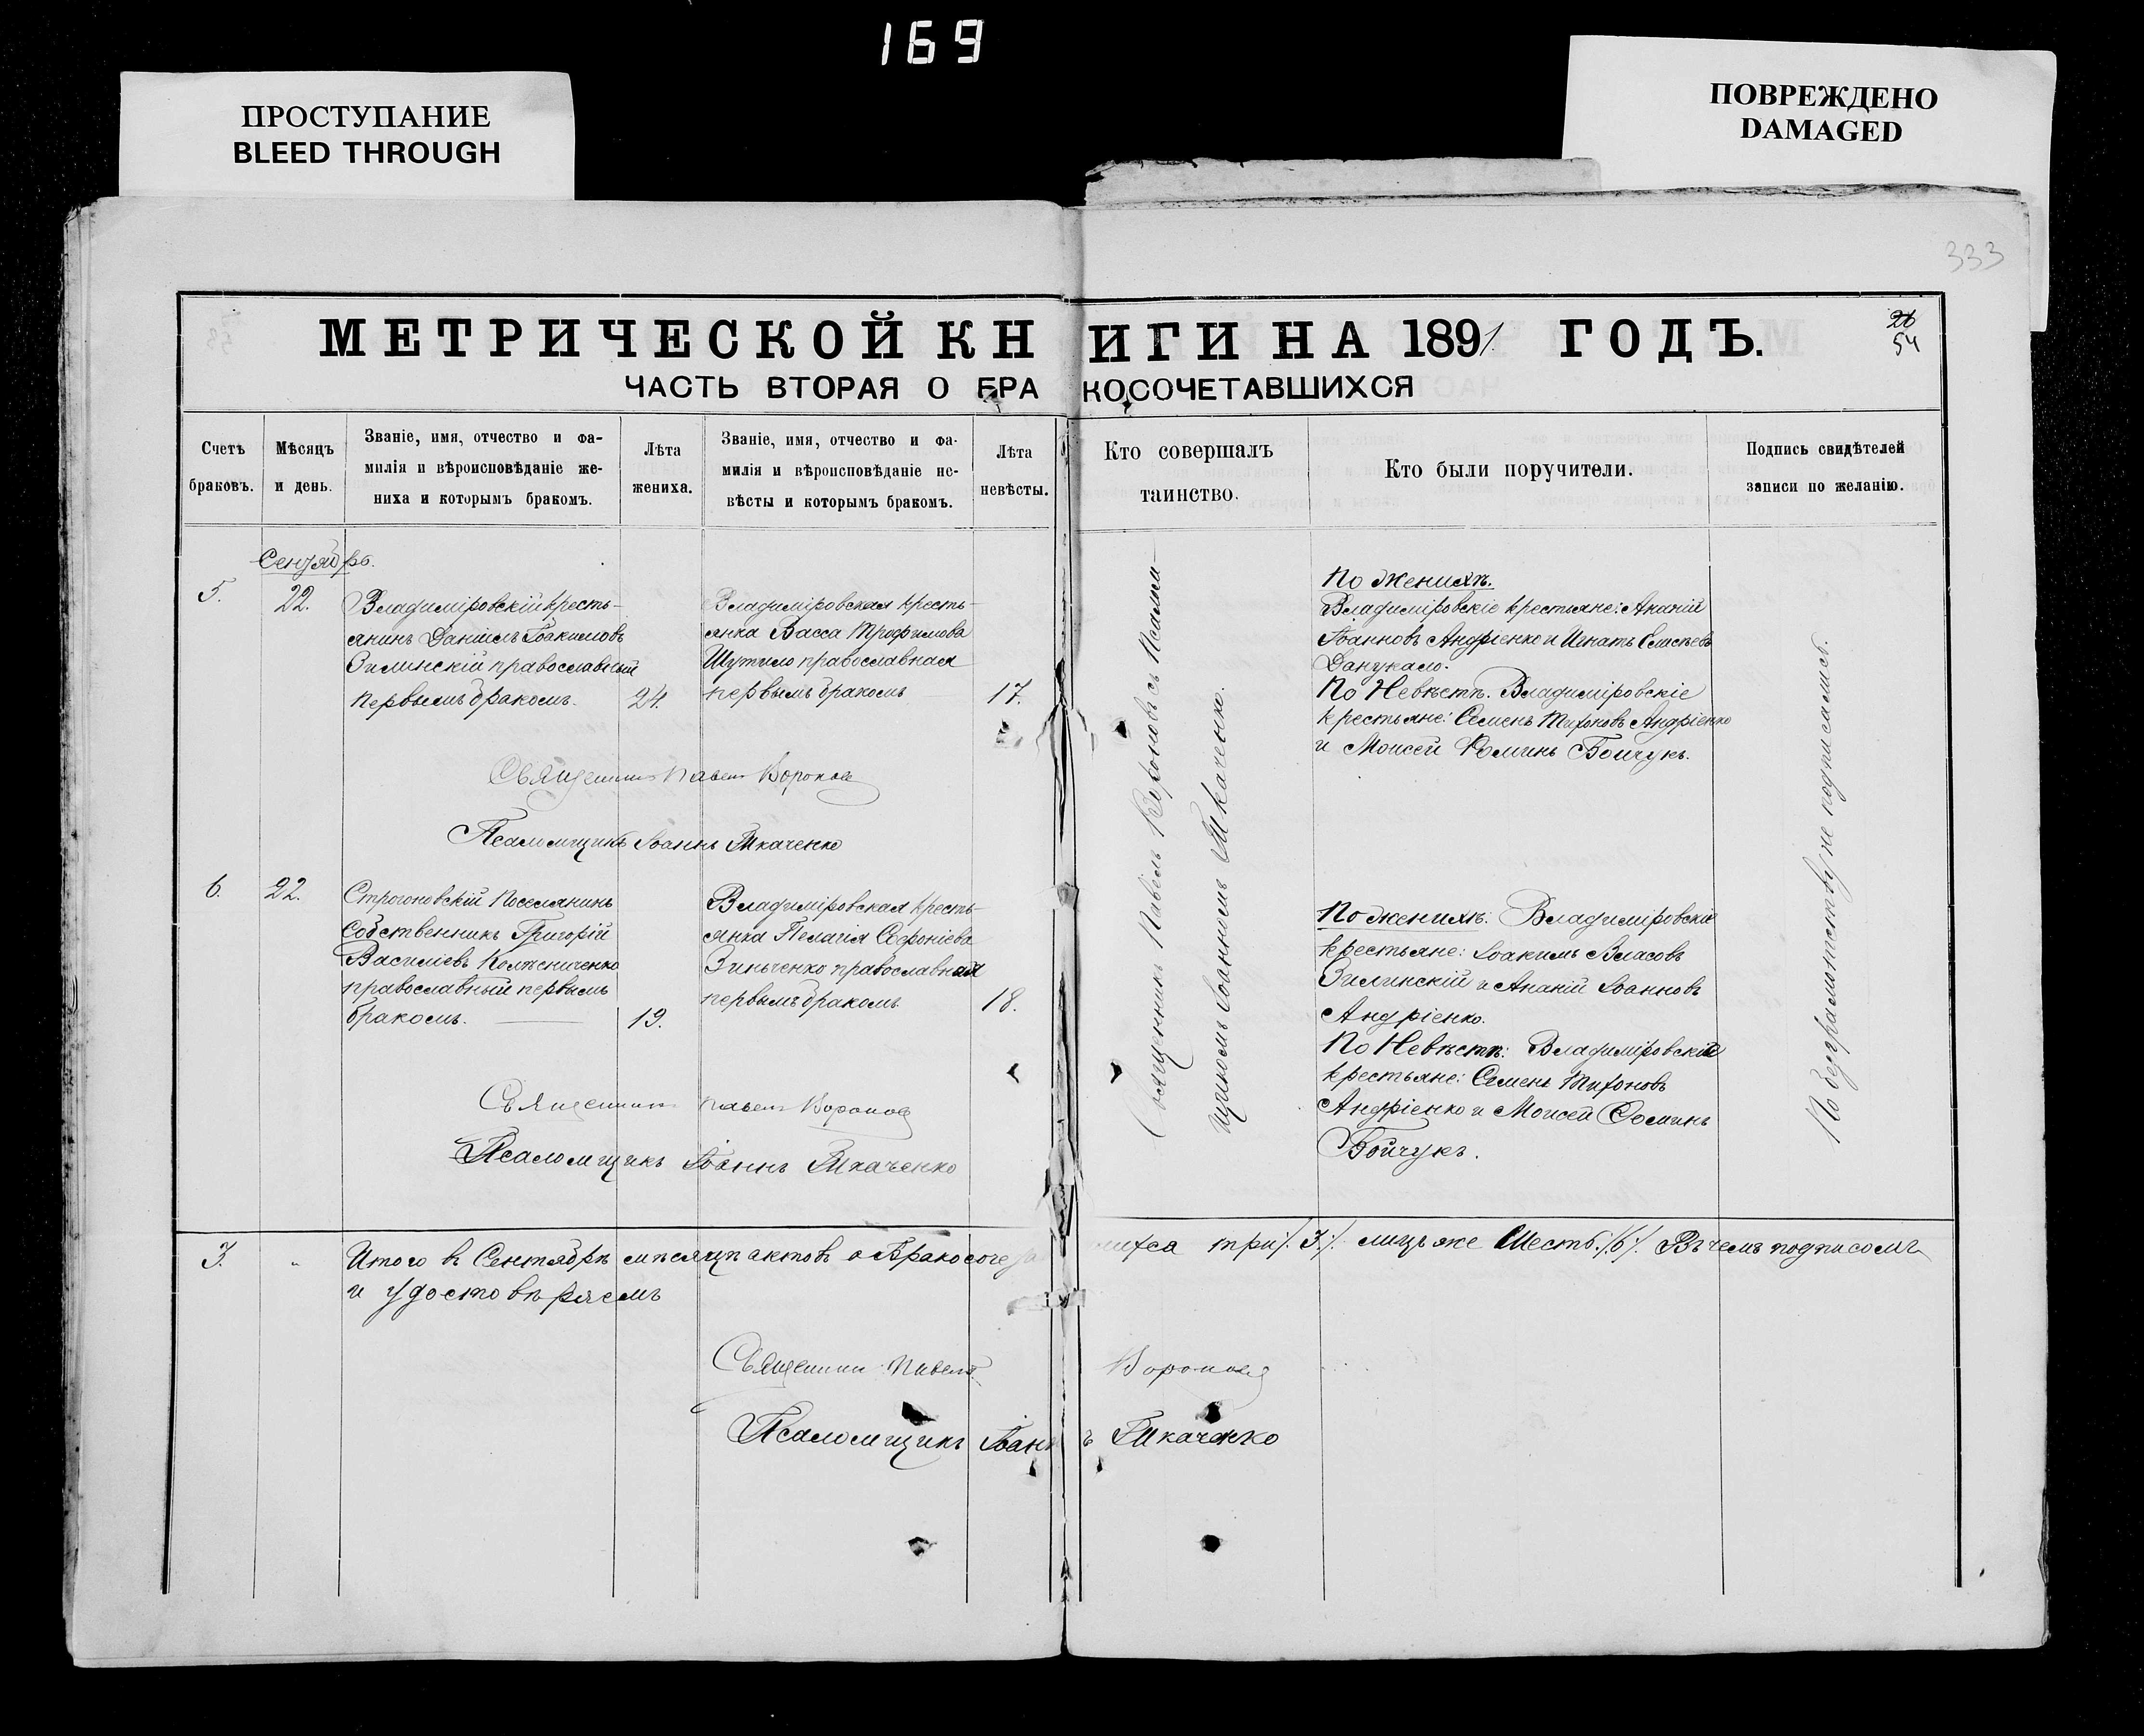 169
ПРОСТУПАНИЕ
BLEED THROUGH
ПОВРЕЖДЕНО
DAMAGED
333
МЕТРИЧЕСКОЙ КНИГИ НА 1891 ГОДЪ.
26
54
ЧАСТЬ ВТОРАЯ О БРАКОСОЧЕТАВШИХСЯ
Счетъ
браковъ.
Мѣсяцъ
и день.
Званіе, имя, отчество и фа-
милія и вѣроисповѣданіе же-
ниха и которымъ бракомъ.
Лѣта
жениха.
Званіе, имя, отчество и фа-
милія и вѣроисповѣданіе не-
вѣсты и которымъ бракомъ.
Лѣта
невѣсты.
Кто совершалъ
таинство.
Кто были поручители.
Подпись свидѣтелей
записи по желанію.
Сентябрь.
5.
22.
Владиміровскій кресть-
янинъ Даніилъ Іоакимовъ
Зилинскій православный
первымъ бракомъ.
24.
Владиміровская кресть-
янка Васса Трофимова
Шутило православная
первымъ бракомъ
17.
Священникъ Павелъ Вороновъ
Псаломщикъ Іоаннъ Ткаченко
Священникъ Павелъ Вороновъ съ Псалом-
щикомъ Іоанномъ Ткаченко.
По женихѣ.
Владиміровскіе крестьяне: Ананій
Іоанновъ Андріенко и Игнатъ
По Невѣстѣ. Владиміровскіе
крестьяне: Семенъ Тихоновъ Андріенко
и Моисей Ѳоминъ Бойчукъ.
По безграмотству не подписались.
6.
22.
Строгоновскій Поселянинъ
Собственникъ Григорій
Василіевъ
православный первымъ
бракомъ.
19.
Владиміровская кресть-
янка Пелагія Софроніева
Зинченко православная
первымъ бракомъ
18.
Священникъ Павелъ Вороновъ
Псаломщикъ Іоаннъ Ткаченко
По женихѣ: Владиміровскіе
крестьяне: Іоакимъ Власовъ
Зилинскій и Ананій Іоанновъ
Андріенко.
По Невѣстѣ: Владиміровскіе
крестьяне: Семенъ Тихоновъ
Андріенко и Моисей Ѳоминъ
Бойчукъ.
3.
"
Итого въ Сентябрѣ мѣсяцѣ актовъ о Бракосоче три /.3/. лицъ же Шесть /.6/. Въ чемъ подписомъ
и удостовѣряемъ
Священникъ Павелъ Вороновъ
Псаломщикъ Іоаннъ Ткаченко